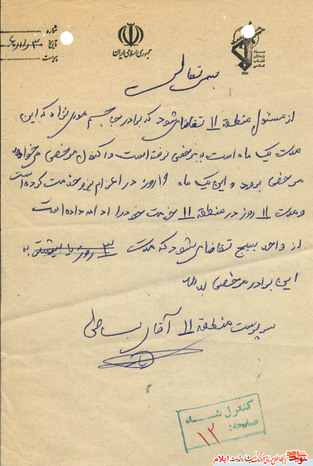 شماره
تاریخ
پیوست
جمهوری اسلامی ایران
بسمه تعالی
از مسئول منطقه ۱۱ تقاضا می شود که برادر جاسم موسی نژاد که این
مدت یک ماه است به مرخصی نرفته است و اکنون مرخصی میخواهد
مرخصی برود و این یک ماه ۱۶ روز در اعزام نیرو خدمت کرده است
و مدت ۱۱ روز در منطقه ۱۱ خدمت خود را ادامه داده است
از واحد بسیج تقاضا می شود که مدت ۳ روز به
این برادر مرخصی بدهد
سرپرست منطقه ۱۱ آقای بساطی
کنترل شد
صفحه:
۱۲